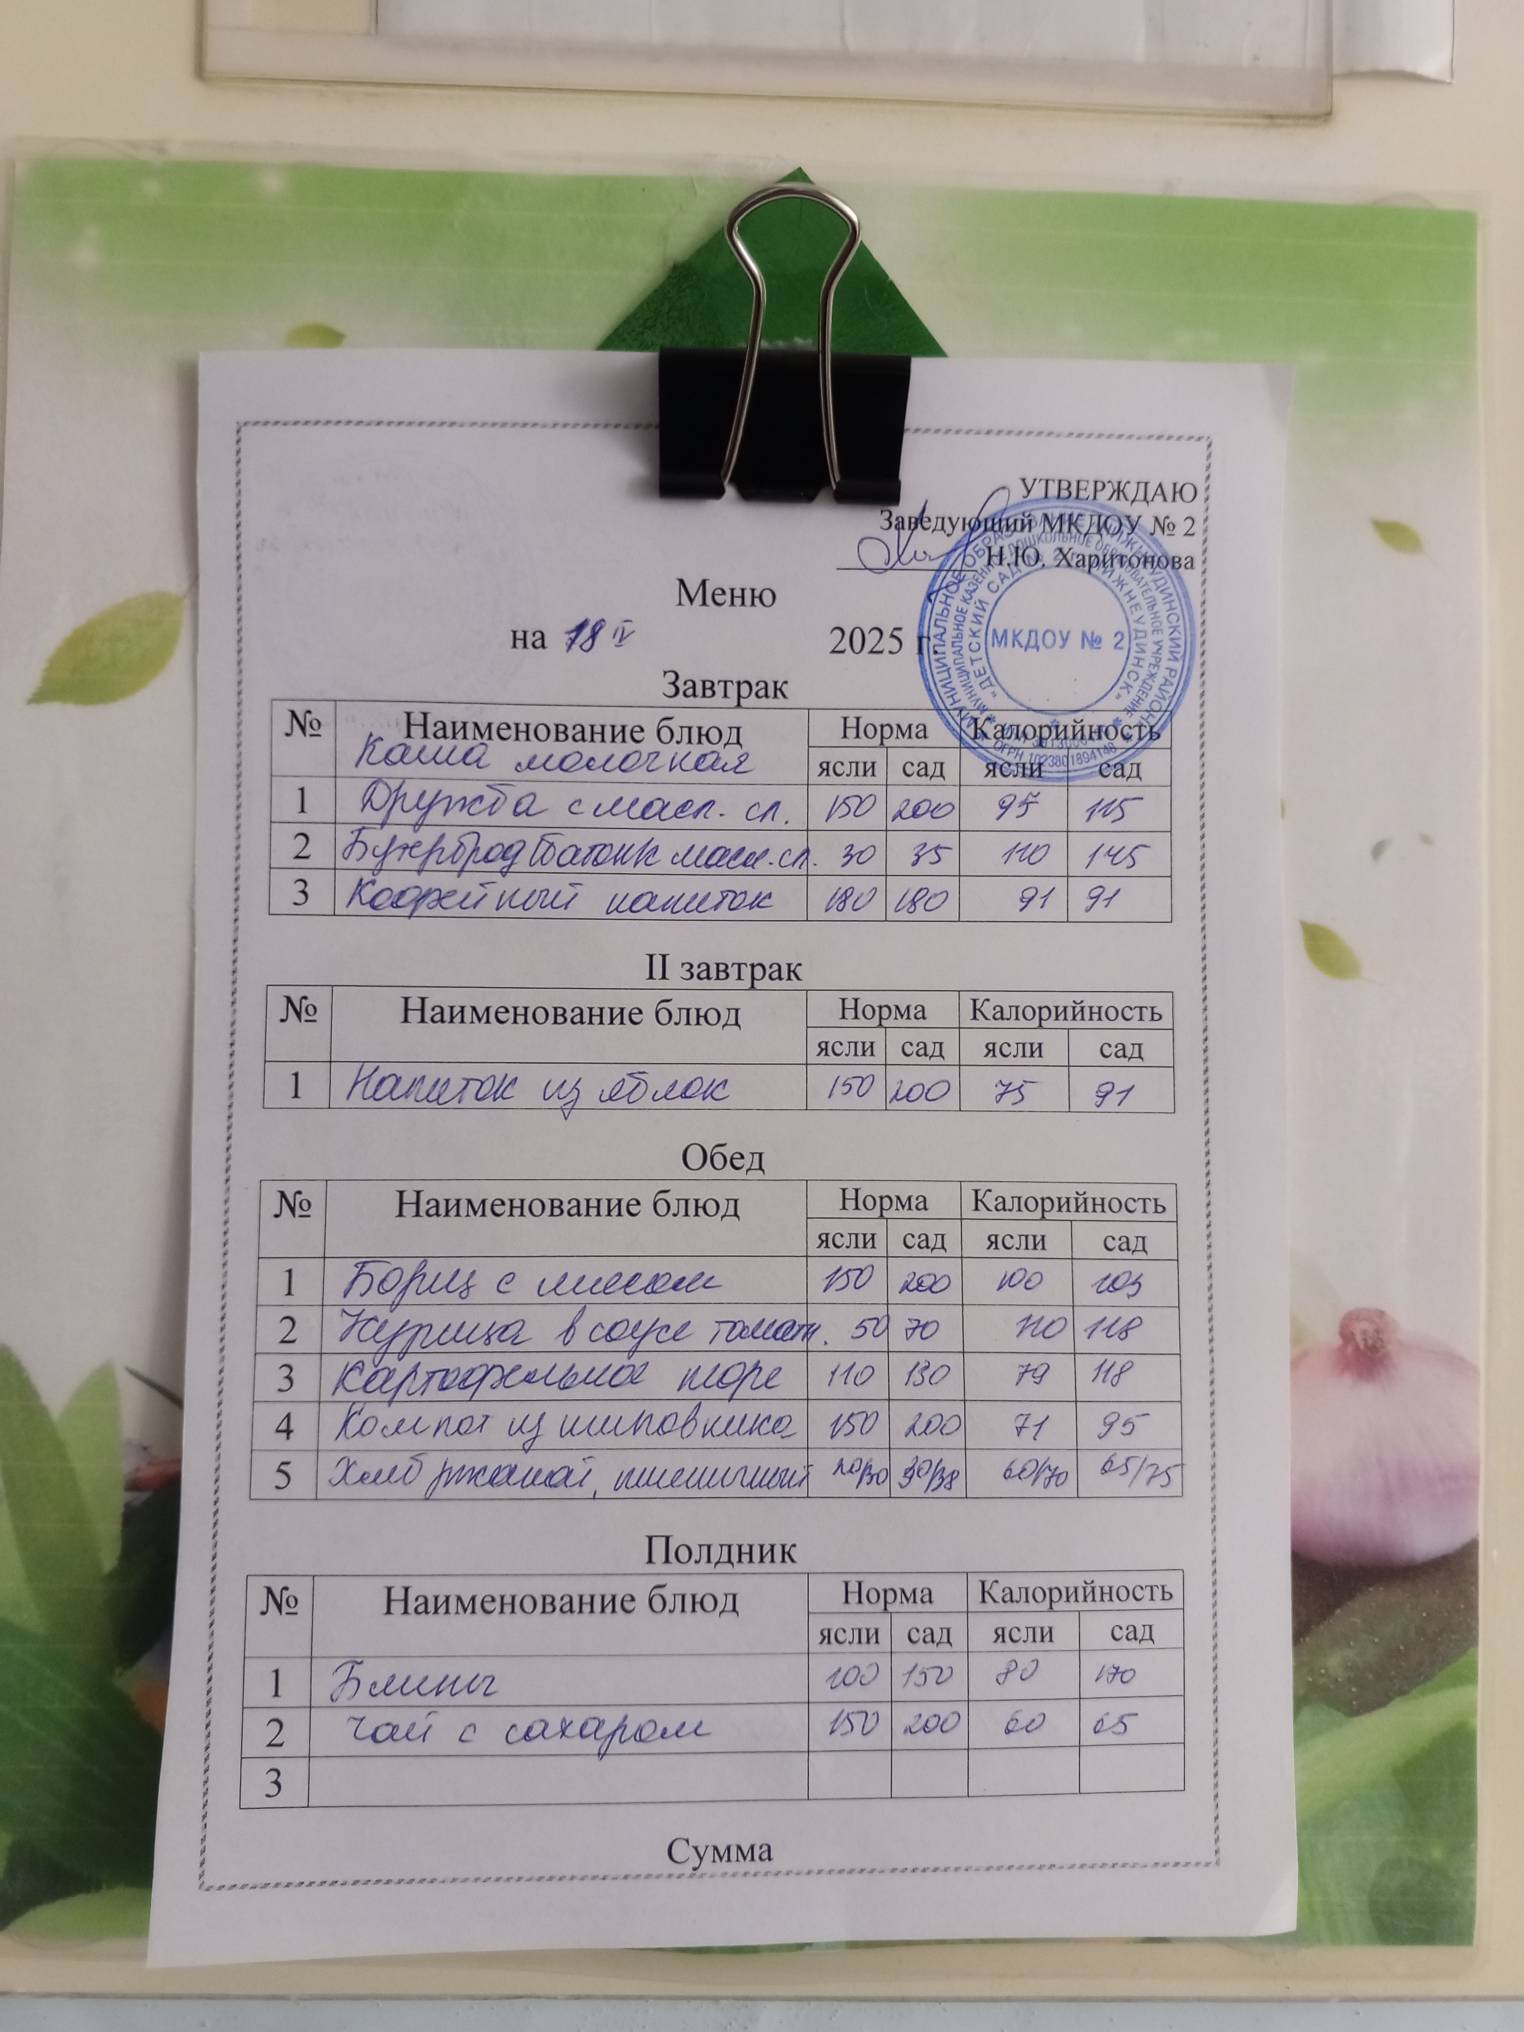 УТВЕРЖДАЮ
Заведующий МКДОУ № 2
Н.Ю. Харитонова
МКДОУ № 2
Меню
на 18 IV 2025 г.
Завтрак
№ Наименование блюд Норма Калорийность
ясли сад ясли сад
Каша молочная
1 Дружба с масл. сл. 150 200 95 115
2 Бутерброд батон с масл. сл. 30 35 110 145
3 Кофейный напиток 180 180 91 91
II завтрак
№ Наименование блюд Норма Калорийность
ясли сад ясли сад
1 Напиток из яблок 150 200 75 91
Обед
№ Наименование блюд Норма Калорийность
ясли сад ясли сад
1 Борщ с мясом 150 200 100 103
2 Курица в соусе томатн. 50 70 110 118
3 Картофельное пюре 110 130 79 118
4 Компот из шиповника 150 200 71 95
5 Хлеб ржаной, пшеничный 20/30 30/38 60/70 65/75
Полдник
№ Наименование блюд Норма Калорийность
ясли сад ясли сад
1 Блины 100 150 80 170
2 Чай с сахаром 150 200 60 65
3
Сумма